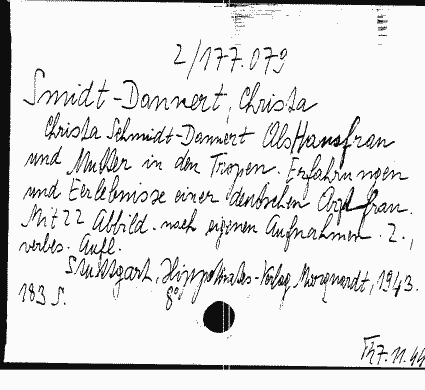 2/177.079
Smidt-Dannert, Christa
Christa Schmidt-Dannert Als Hausfrau
und Mutter in den Tropen. Erfahrungen
und Eerlebnisse einer deutschen frau.
Mit 22 Abbild. nach eigenen Aufnahmen. 2.,
verbes. Aufl.
Stuttgart, Hippokrates-Verlag Marquardt, 1943.
183 S. 8°